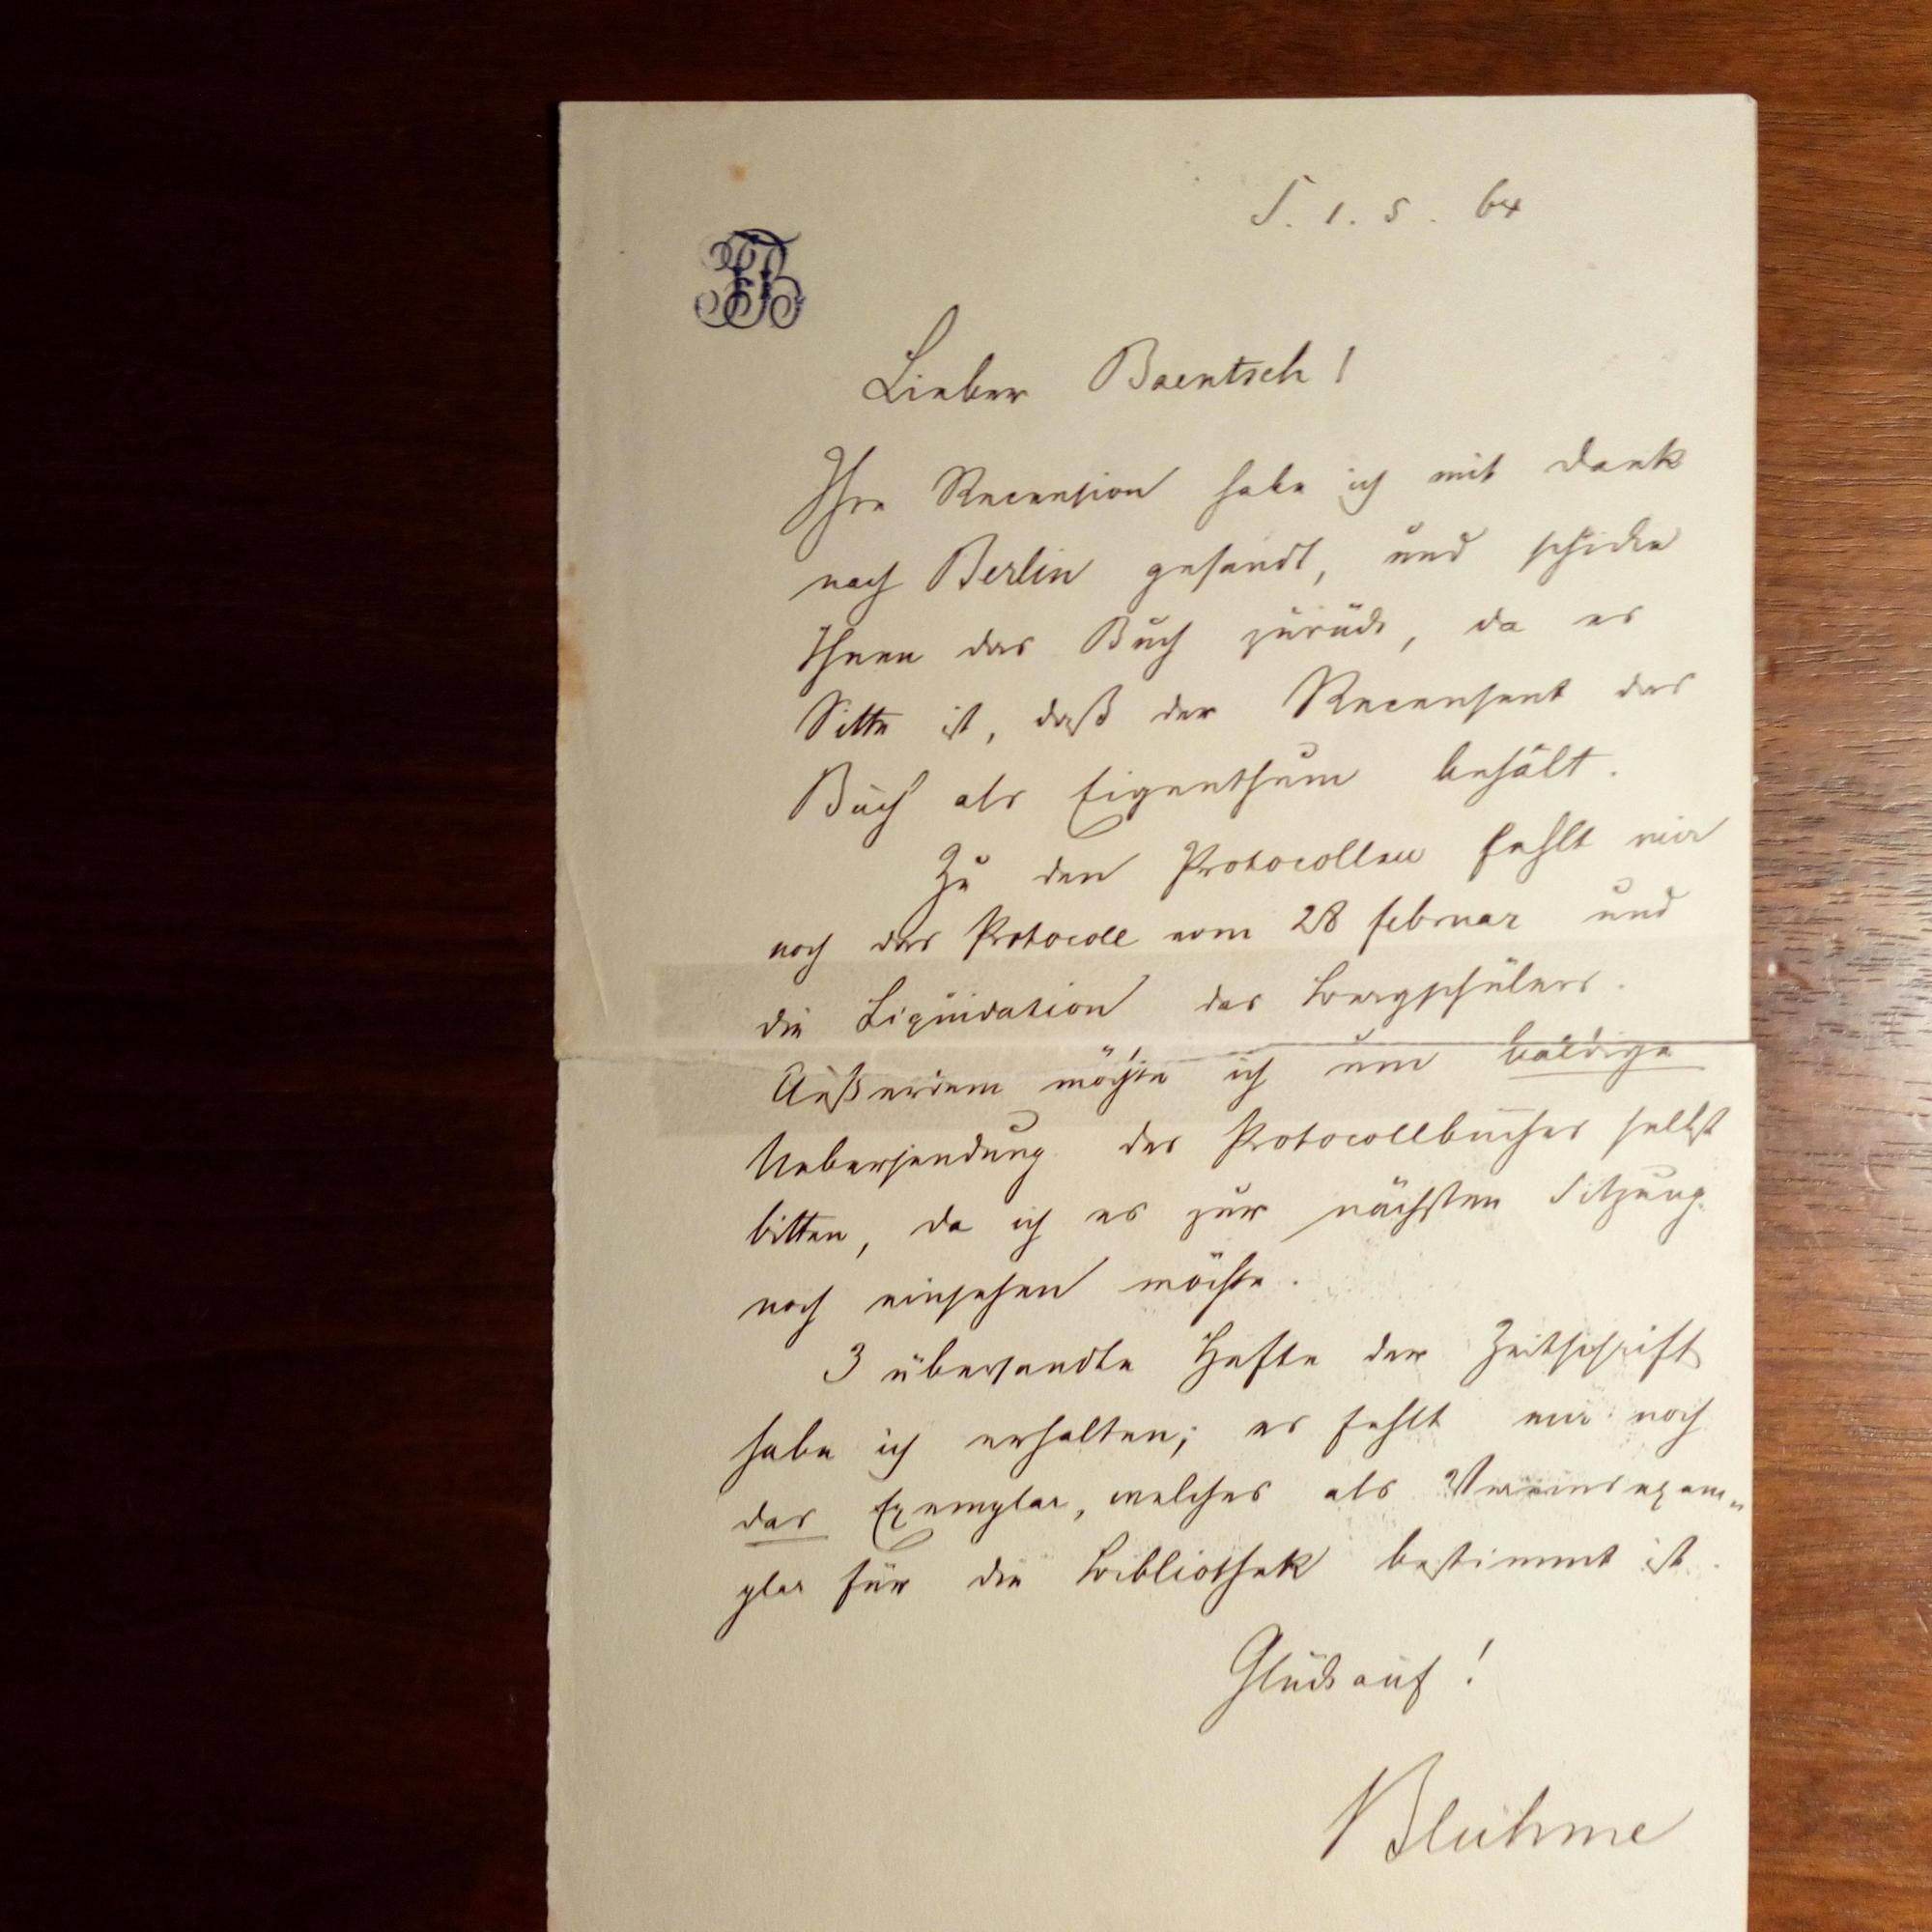 S. 1. 5. 64
Lieber Baentsch!
Ihre Recension habe ich mit Dank
nach Berlin gesandt, und schicke
Ihnen das Buch zurück, da es
Sitte ist, daß der Recensent das
Buch als Eigenthum behält.
Zu den Protocollen fehlt mir
noch das Protocoll vom 28 Februar und
die Liquidation des Bergschülers.
Außerdem möchte ich um baldige
Uebersendung des Protocollbuches selbst
bitten, da ich es zur nächsten Sitzung
noch einsehen möchte.
3 übersandte Hefte der Zeitschrift
habe ich erhalten; es fehlt mir noch
das Exemplar, welches als Vereinsexem„
plar für die Bibliothek bestimmt ist.
Glückauf!
Bluhme